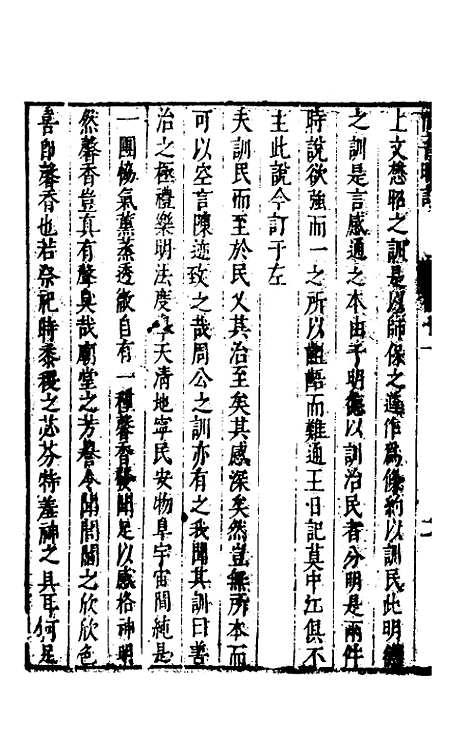 上文懋昭之訓是周師保之遺作為條約以訓民此明德
之訓是言感通之本由于明德以訓治民者分明是兩件
時說欲強而一之所以齟齬而難通王日記莫中江俱不
主此說今訂于左
夫訓民而至於民乂其治至矣其感深矣然豈無所本而
可以空言陳迹致之哉周公之訓亦有之我聞其訓曰善
治之極禮樂明法度天清地寧民安物阜宇宙間純是
一團暢氣薰蒸透徹自有一種馨香發聞足以感格神明
然馨香豈真有聲臭哉廟堂之芳譽令聞閭閻之欣欣色
喜即馨香也若祭祀時黍稷之苾芬特羞神之具耳何足